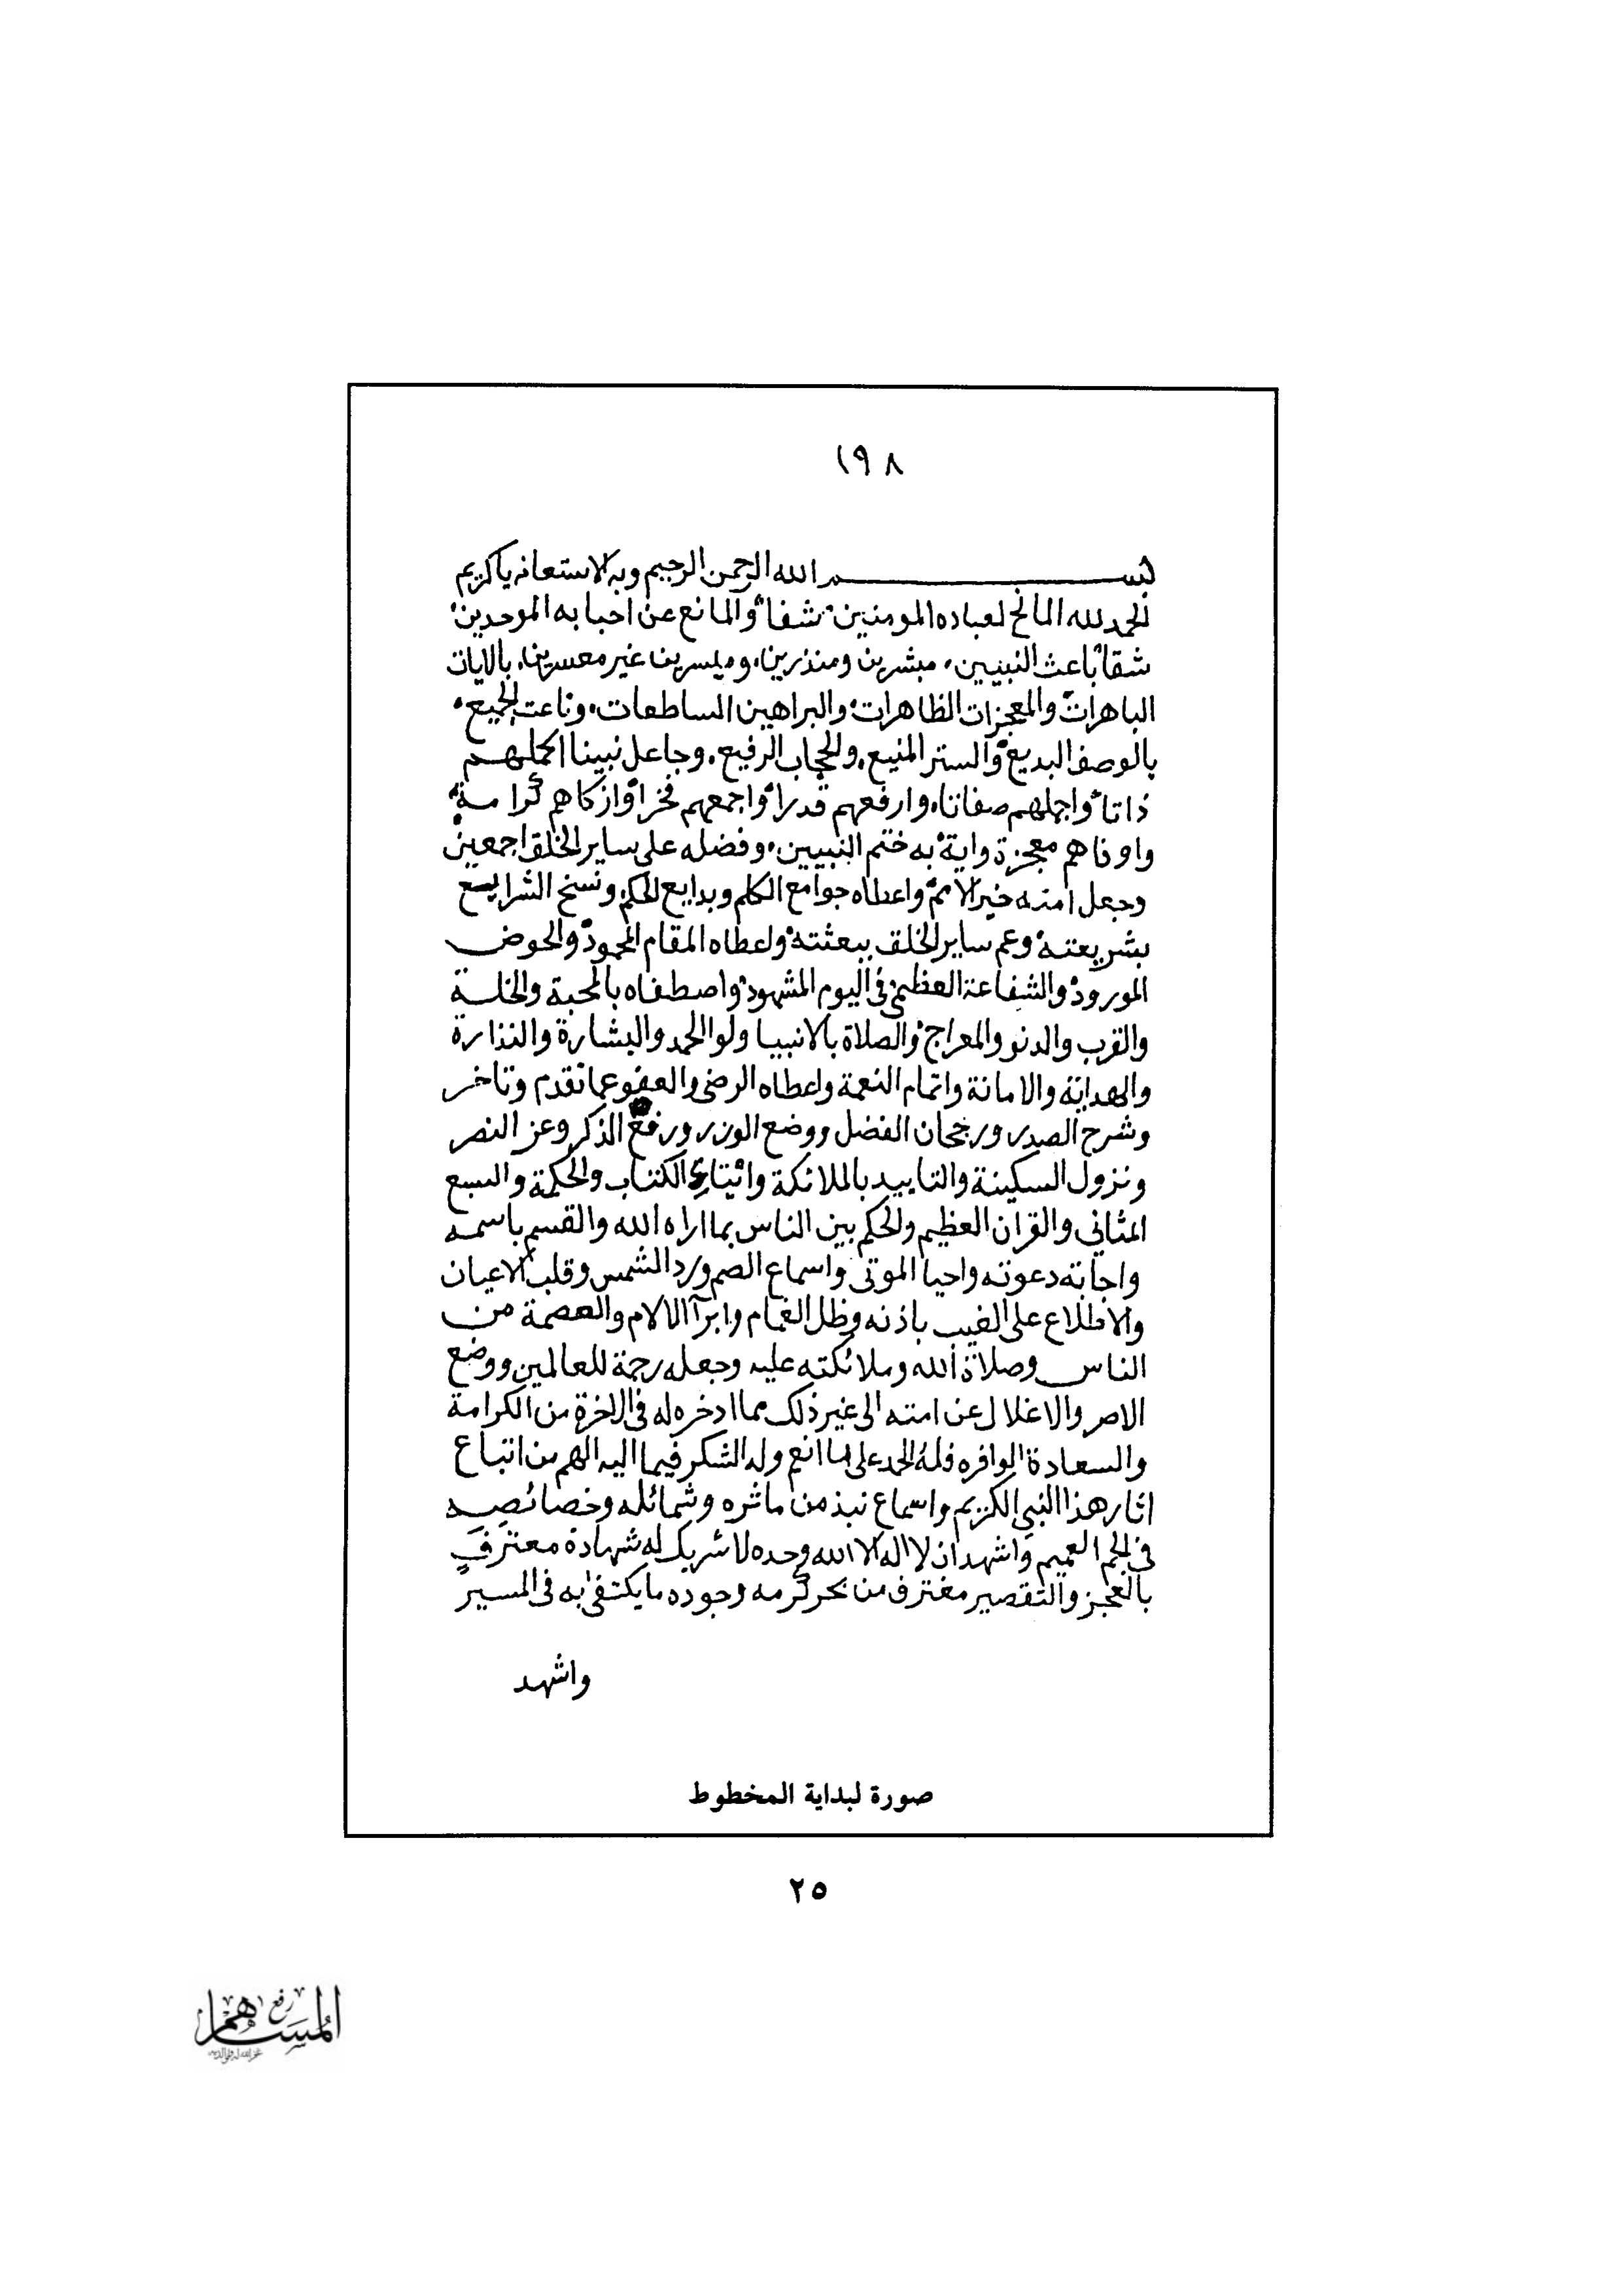 ١٩٨
بسم الله الرحمن الرحيم وبه الاستعانه ياكريم
الحمد لله المانح لعباده المومنين شفاً والمانع عن احبابه الموحدين
شقاً باعث النبيين، مبشرين ومنذرين، وميسرين غير معسرين، بالايات
الباهرات والمعجزات الظاهرات والبراهين الساطعات، وناعت الجميع
بالوصف البديع والستر المنيع، والحجاب الرفيع، وجاعل نبينا اكملهم
ذاتاً واجملهم صفاتا، وارفعهم قدراً واجمعهم فخراً وازكاهم كرامة
واوفاهم معجزة واية به ختم النبيين، وفضله على ساير الخلق اجمعين
وجعل امته خير الامم واعطاه جوامع الكلم وبدايع الحكم ونسخ الشرايع
بشريعته وعم ساير الخلق ببعثته واعطاه المقام المحمود والحوض
المورود والشفاعة العظمى في اليوم المشهود واصطفاه بالمحبة والخلة
والقرب والدنو والمعراج والصلاة بالانبيا ولوا الحمد والبشارة والنذارة
والهداية والامانة واتمام النعمة واعطاه الرضى والعفو عما تقدم وتاخر
وشرح الصدر ورجحان الفضل ووضع الوزر ورفع الذكر وعز النصر
ونزول السكينة والتاييد بالملائكة وايتاء الكتاب والحكمة والسبع
المثاني والقران العظيم والحكم بين الناس بما اراه الله والقسم باسمه
واجابة دعوته واحيا الموتى واسماع الصم ورد الشمس وقلب الاعيان
والاطلاع على الغيب باذنه وظل الغمام وابرآ الالام والعصمة من
الناس وصلاة الله وملائكته عليه وجعله رحمة للعالمين ووضع
الاصر والاغلال عن امته الى غير ذلك مما ادخره له في الاخرة من الكرامة
والسعادة الوافره فله الحمد على ما انعم وله الشكر فيما اليه الهم من اتباع
اثار هذا النبي الكريم واسماع نبذ من ماثره وشمائله وخصائصه
في الجم العميم واشهد ان لا اله الا الله وحده لا شريك له شهادة معترف
بالعجز والتقصير مغترف من بحر كرمه وجوده ما يكتفى به في المسير
واشهد
صورة لبداية المخطوط
٢٥
رفع
المساهم
غفر الله له ولوالديه